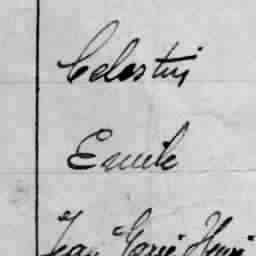 Celestin
Emile
Jean Marie Henri